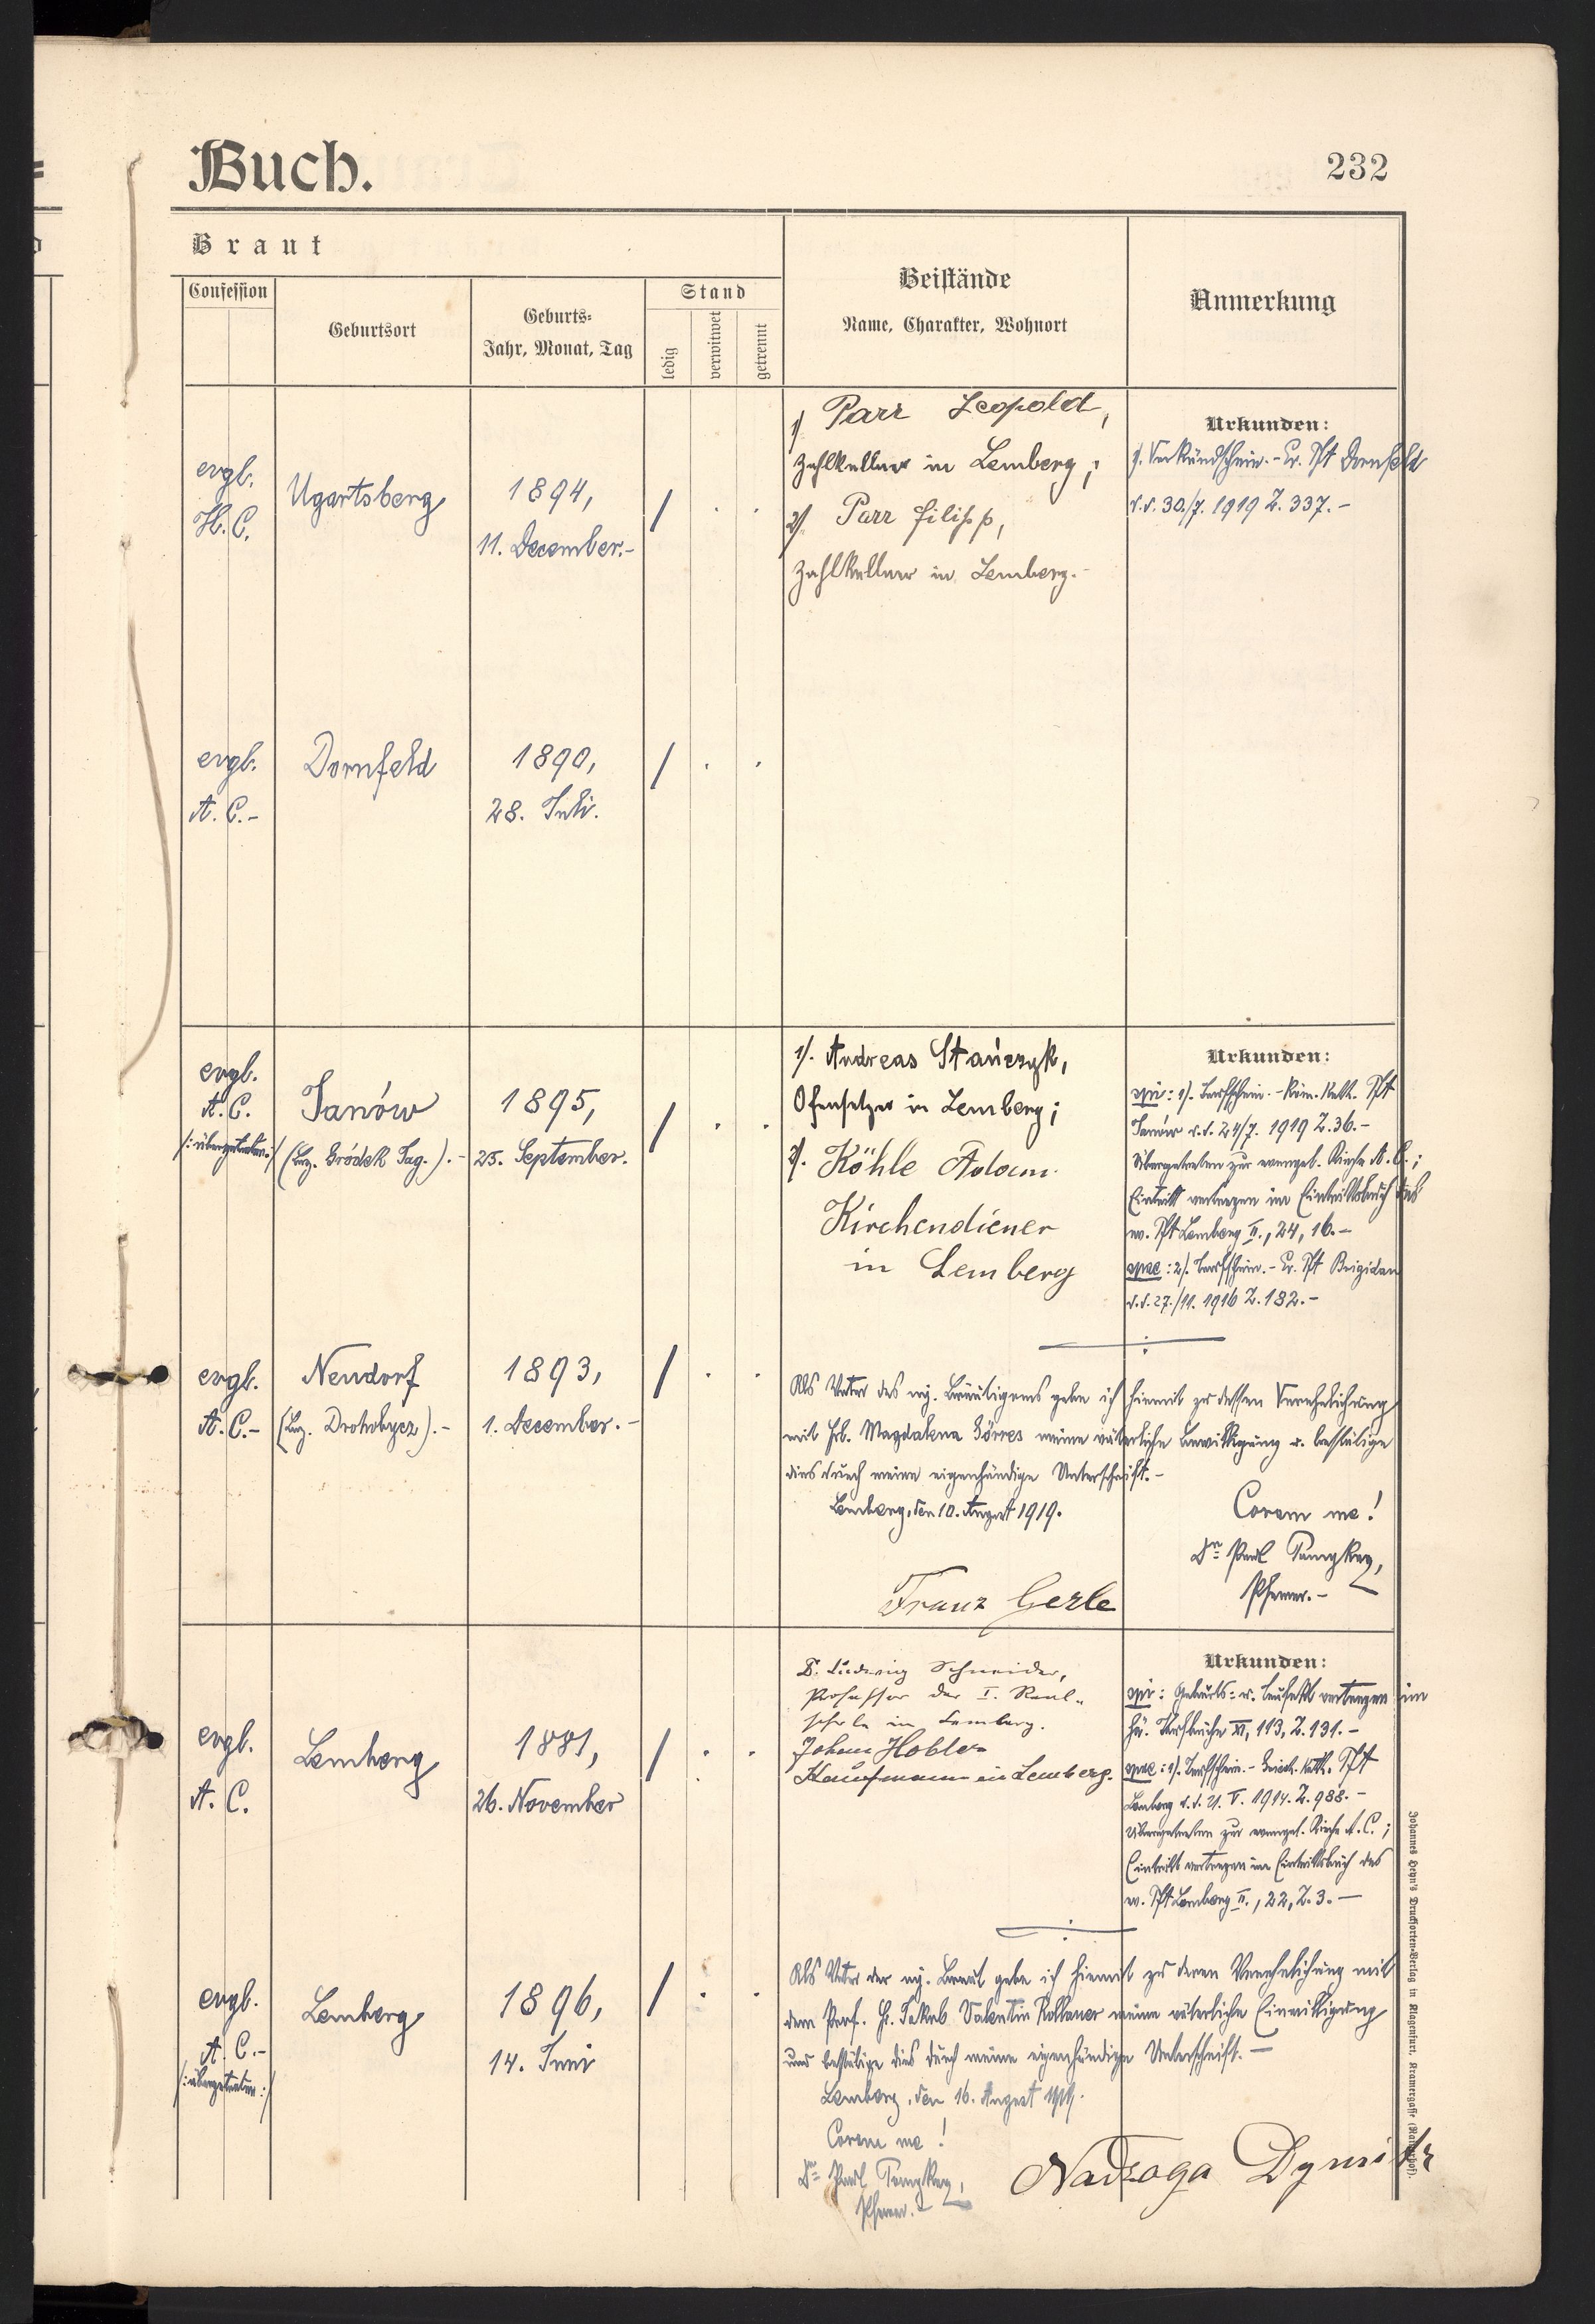 Buch.
232
Braut
Beistände
Name, Charakter, Wohnort
Anmerkung
Confession
Geburtsort
Geburts-
Jahr, Monat, Tag
Stand
ledig
verwitwet
getrennt
evgl.
H. C.
Ugartsberg
1894,
11. December.-
/ . .
1/ Parr Leopold,
Zahlkellner in Lemberg;
2/. Parr Filipp,
Zahlkellner in Lemberg.-
Urkunden:
1/. Verkündschein.- Ev. Pft Dornfeld
d.d. 30./7. 1919 Z. 337.-
evgl.
A. C.-
Dornfeld
1890,
28. Juli.
/ . .
evgl.
A. C.
/:übergetreten:/
Janów
(Bez. Gródek Jag.).-
1895,
25. September.
/ . .
1/. Andreas Stańczyk,
Ofensetzer in Lemberg;
2/. Köhle Adam
Kirchendiener
in Lemberg
Urkunden:
1/. Taufschein.- Röm. Kath. Pft
Janów d.d. 24/7. 1919 Z. 36.-
Übergetreten zur evangel. Kirche A. C.;
Eintritt vertragen im Eintrittsbuch des
ev. Pft Lemberg II., 24, 16.-
2/. Taufschein.- Ev. Pft Brigidau
d.d. 27./11. 1916 Z. 182.-
evgl.
A. C.-
Neudorf
(Bez. Drohobycz).-
1893,
1. December.-
/ . .
Als Vater des ng. Bräutigams gebe ich hiemit zu dessen Verehelichung
mit Frl. Magdalena Görres meine väterliche Bewilligung u. bestätige
dies durch meine eigenhändige Unterschrift.-
Lemberg, den 10. August 1919.
Coram me!
Dr. Paul
Pfarrer.-
Franz Gerle
evgl.
A. C.
Lemberg
1881,
26. November
/ . .
D. Ludwig Schneider,
Professor der I. Real-
schule in Lemberg.
Johann Hobler
Kaufmann in Lemberg.
Urkunden:
Geburts- u. Taufakt vertragen im
XI, 113, Z. 131.-
1/. Taufschein.- Griech. Kath. Pft
Lemberg d.d. 21. V. 1914. Z. 988.-
Übergetreten zur evangel. Kirche A. C.;
Eintritt vertragen im Eintrittsbuch des
ev. Pft Lemberg II., 22, Z. 3.-
evgl.
A. C.-
/:übergetreten:/
Lemberg
1896,
14. Juni
/ . .
Als Vater der ng. Braut gebe ich hiemit zu deren Verehelichung mit
dem Prof. H. Jakob Valentin meine väterliche Einwilligung
und bestätige dies durch meine eigenhändige Unterschrift.-
Lemberg, den 16. August 1919.
Coram me!
Dr. Paul
Pfarrer.-
Nadraga
Johannes Heyn's Drucksorten-Verlag in Klagenfurt, Kramergasse